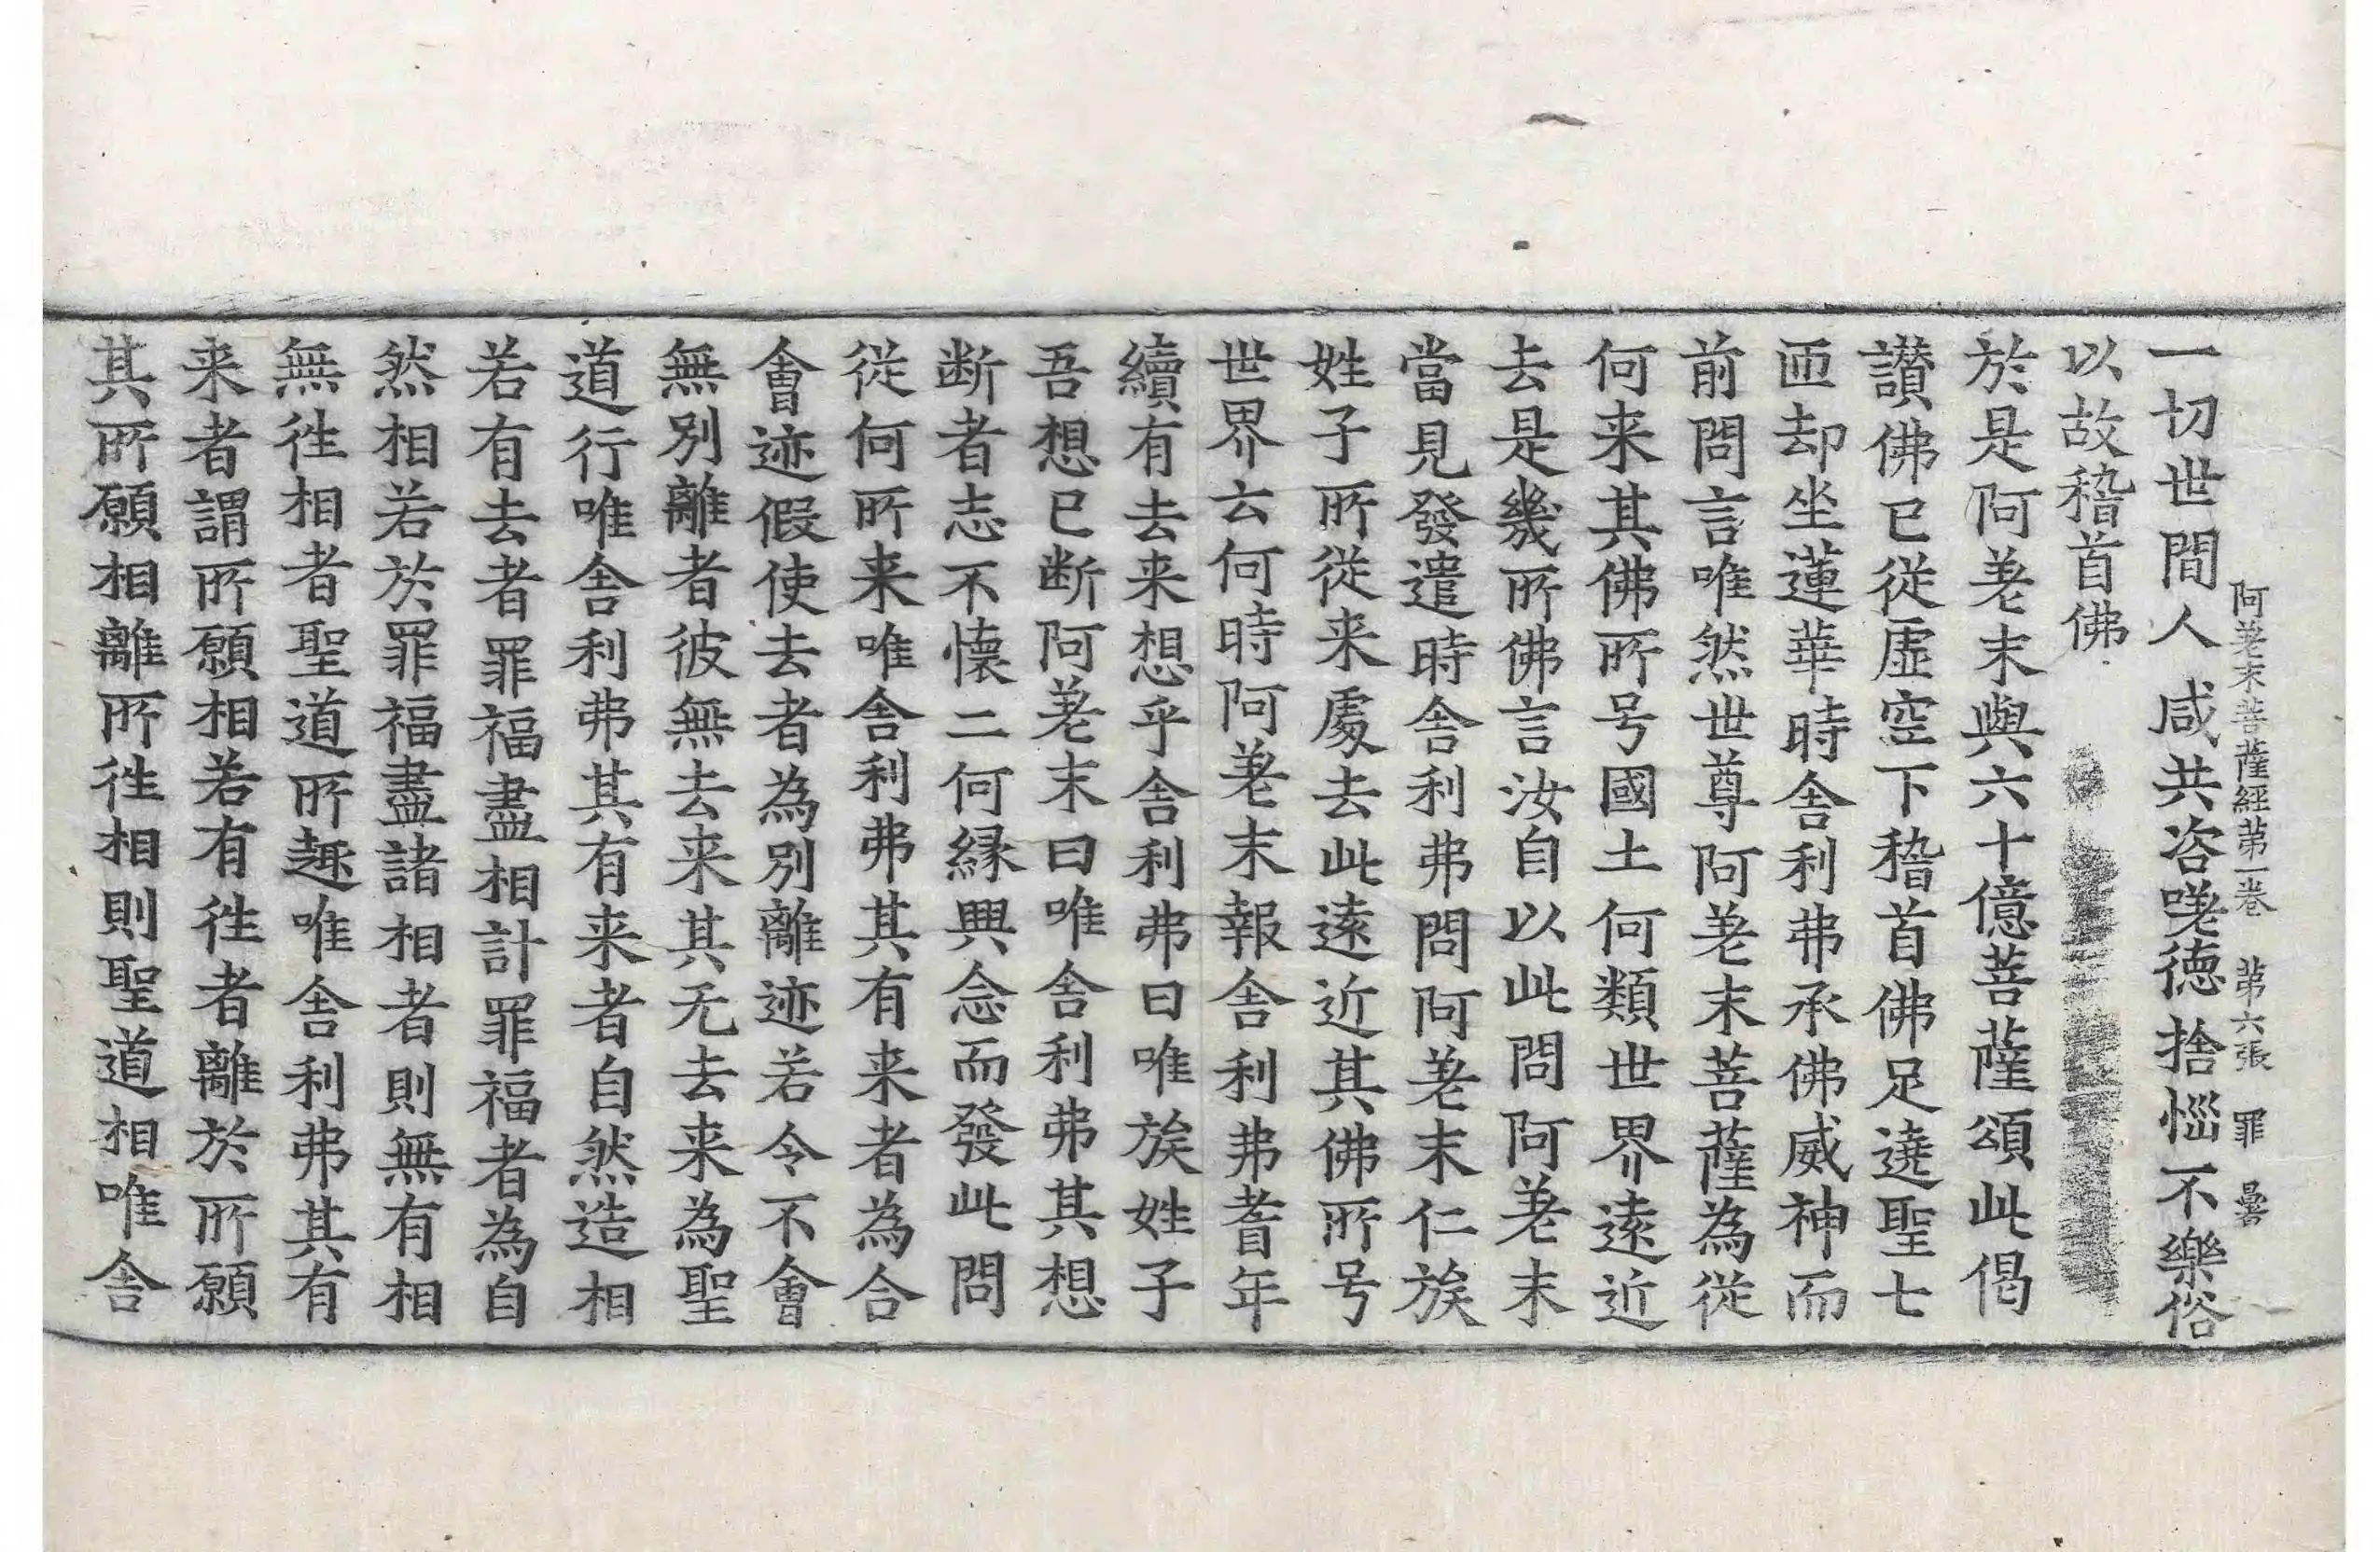 阿差末菩薩経第一卷　第六張　罪　曇
一切世間人咸共咨嗟德捨惱不樂俗
以故稽首佛
於是阿差末與六十億菩薩頌此偈
讃佛已從虛空下稽首佛足遶聖七
匝却坐蓮華時舍利弗承佛威神而
前問言唯然世尊阿差末菩薩為從
何来其佛所号國土何類世界遠近
去是幾所佛言汝自以此問阿差末
當見發遣時舍利弗問阿差末仁族
姓子所從来處去此遠近其佛所号
世界云何時阿差末報舍利弗耆年
續有去来想乎舍利弗曰唯族姓子
吾想已断阿差末曰唯舍利弗其想
断者志不懷二何緣興念而發此問
從何所来唯舍利弗其有来者為合
會迹假使去者為別離迹若令不會
無別離者彼無去来其无去来為聖
道行唯舍利弗其有来者自然造相
若有去者罪福盡相計罪福者為自
然相若於罪福盡諸相者則無有相
無往相者聖道所趣唯舍利弗其有
来者謂所願相若有往者離於所願
其所願相離所往相則聖道相唯舍